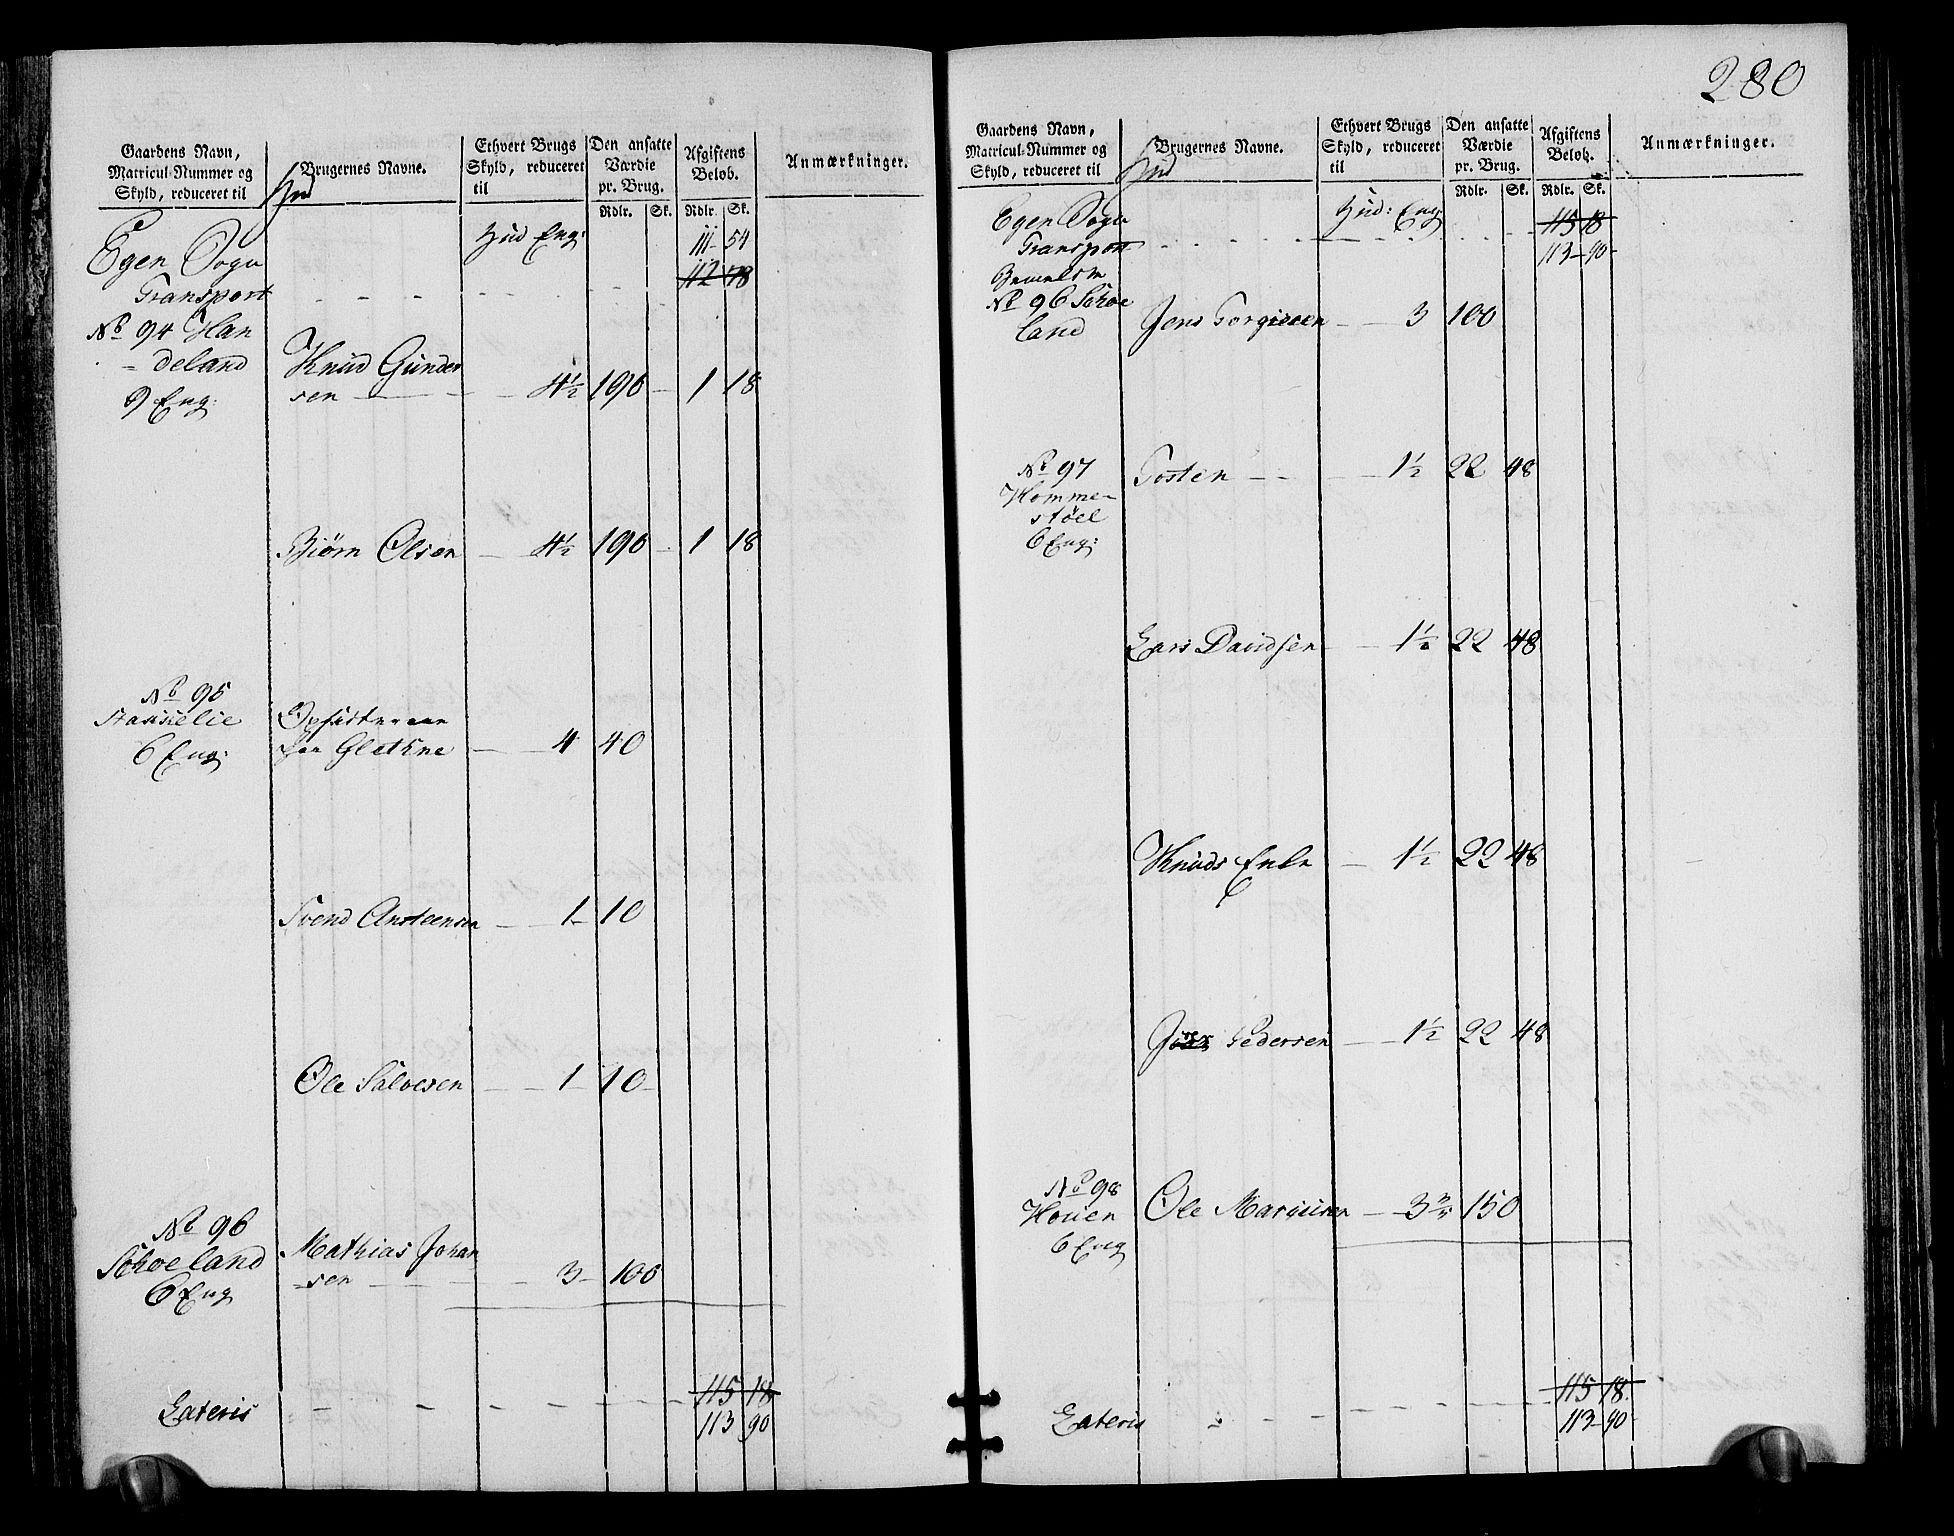 Gaardens Navn,
Matricul-Nummer og
Skyld, reduceret til
Hud
Brugernes Navne.
Ethvert Brugs
Skyld, reduceret
til
Den ansatte
Værdie
pr. Brug.
Rdlr. Sk.
Afgiftens
Beløb.
Rdlr. Sk.
Anmærkninger.
Egen Sogn
Hud Eng:
111 54
112 78
Transport
No 94 Han
deland
9 Eng:
Knud Gunder
sen 4½ 190 1 18
Biørn Olsen 4½ 190 1 18
No 95
6 Eng:
4 40
Svend Ansteensen 1 10
Ole Salvesen 1 10
No 96
Schoeland
6 Eng
Mathias Johan
sen 3 100
Lateris
115 18
113 90
280
Gaardens Navn,
Matricul-Nummer og
Skyld, reduceret til
Hud
Brugernes Navne.
Ethvert Brugs
Skyld, reduceret
til
Den ansatte
Værdie
pr. Brug.
Rdlr. Sk.
Afgiftens
Beløb.
Rdlr. Sk.
Anmærkninger.
Egen Sogn
Hud: Eng
115 18
Transport
113 90
No 96 Schoe
land
Jens Torgissen 3 100
No 97
Homme
støel
6 Eng:
Tosten 1½ 22 48
Lars Davidsen 1½ 22 48
Knuds Enke 1½ 22 48
Pedersen 1½ 22 48
No 98
Houen
6 Eng
Ole 3 150
Lateris
115 18
113 90